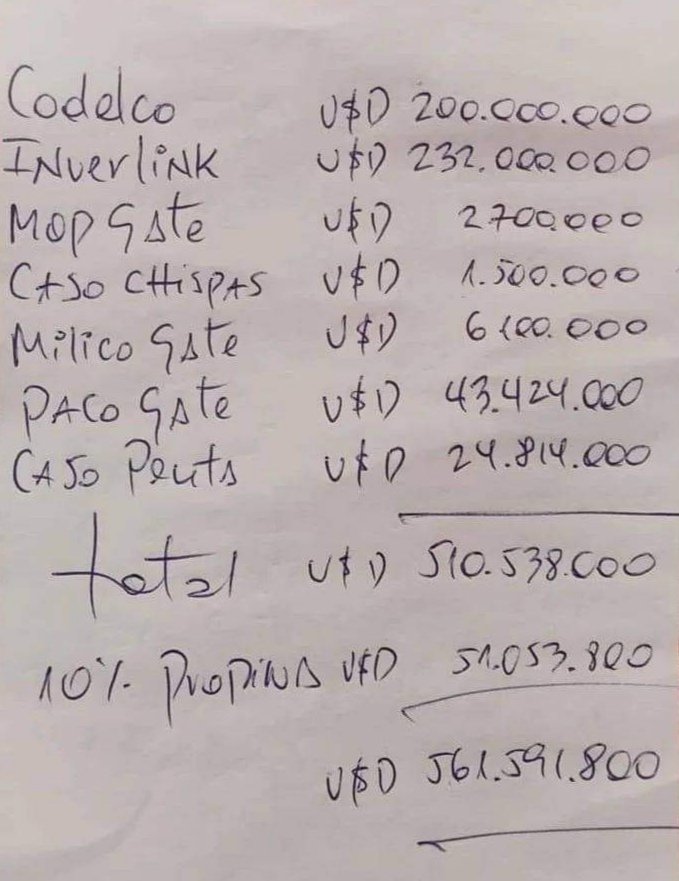 Codelco U$D 200.000.000
INverliNK U$D 232.000.000
MOP GAte U$D 2.700.000
CASO CHISPAS U$D 1.500.000
Milico GAte U$D 6.100.000
PACO GAte U$D 43.424.000
CASO Penta U$D 24.814.000
total U$D 510.538.000
10% PropiNA U$D 51.053.800
U$D 561.591.800